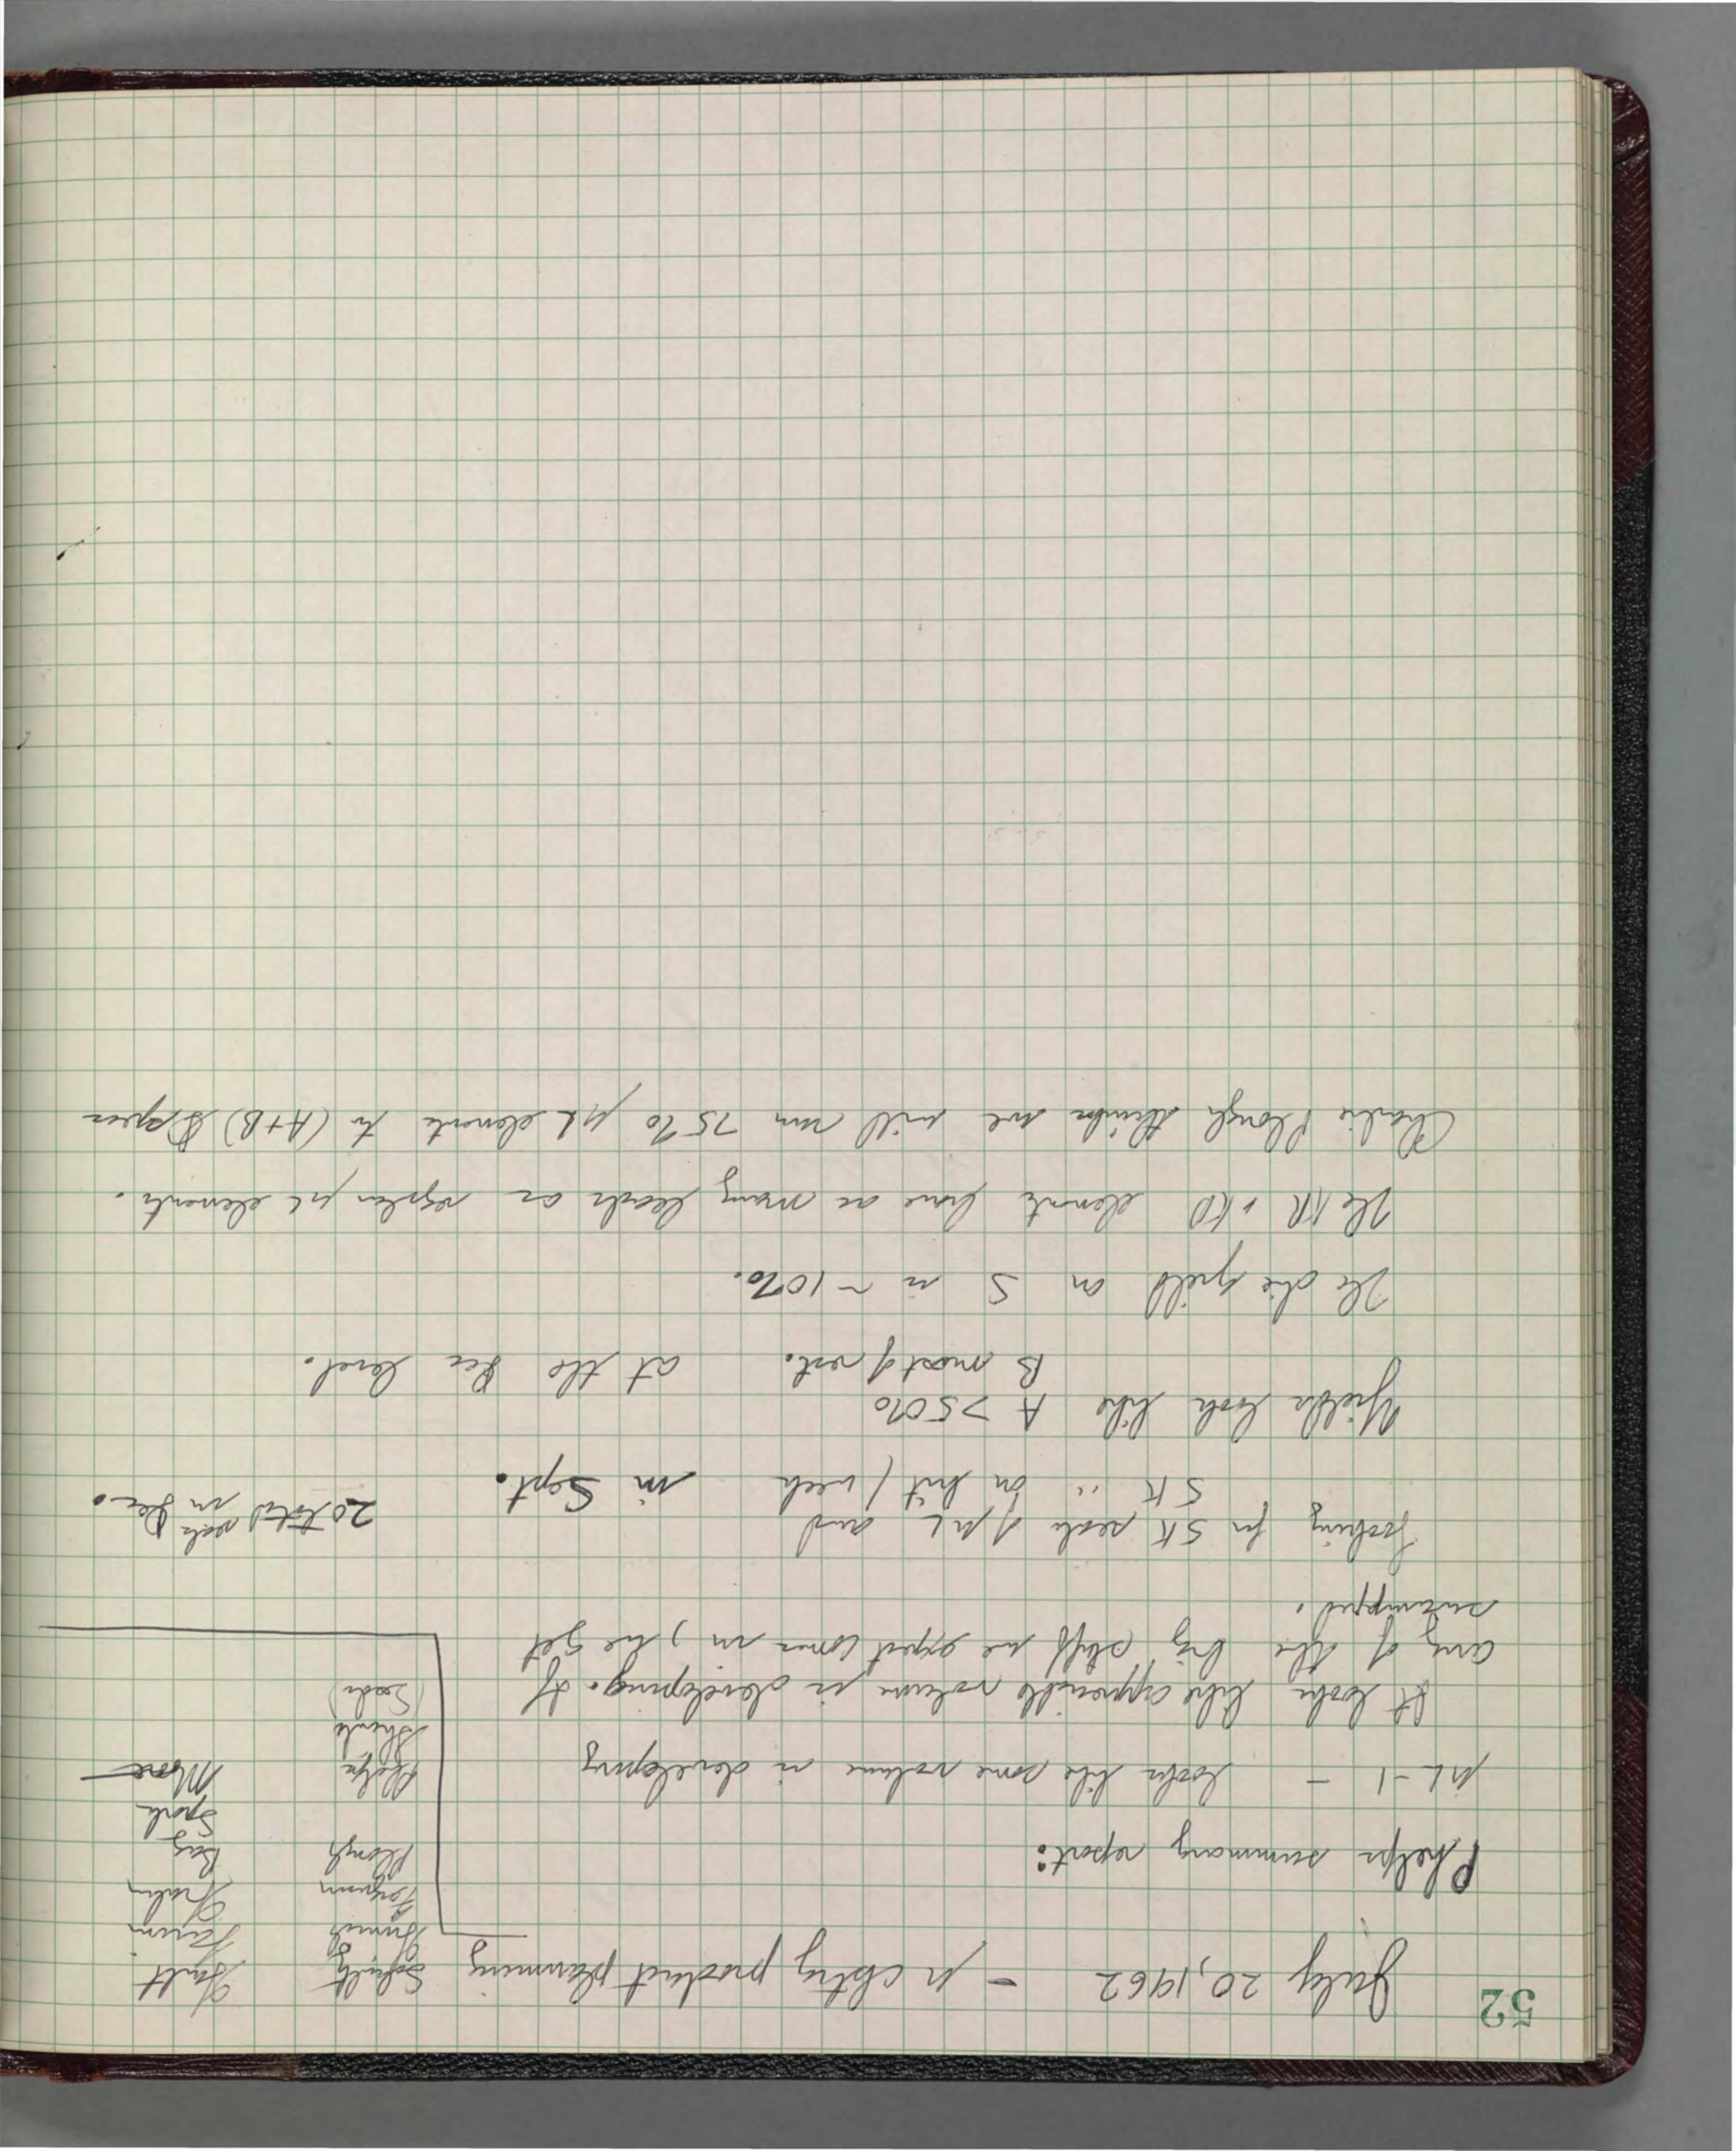 52
July 20, 1962 - μ cktry product planning
Schultz
Ferguson
Plough
Phelps
(Seeds)
Hall
Farina
Bay
Spork
Moore
Phelps summary report:
μL-1 - looks like some volume is developing
It looks like appreciable volume is developing. If
any of the big stuff we expect comes in, we get
swamped.
Looking for 5K seals of μL and
5K " on kit/week in Sept.
20 total seals in Dec.
Yields look like A >50%
B most of rest. at the Dec level.
The die yield on S is ~10%.
The KR + KD elements have as many leads as regular μL elements.
Charlie Plough thinks we will run 75% μL elements to (A+B) specs